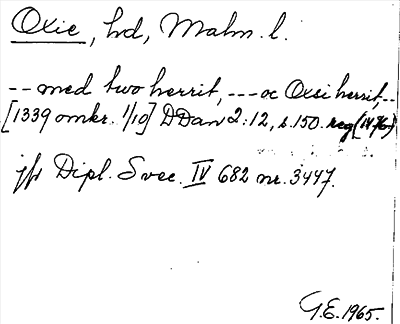 Oxie, hd, Malm. l.
-- med two herrit, --- oc Oxsi herrit, --
[1339 omkr. 1/10] DDan 2:12, s. 150. reg (1476)
jfr Dipl. Svec. IV 682 nr. 3447.
G.E. 1965.